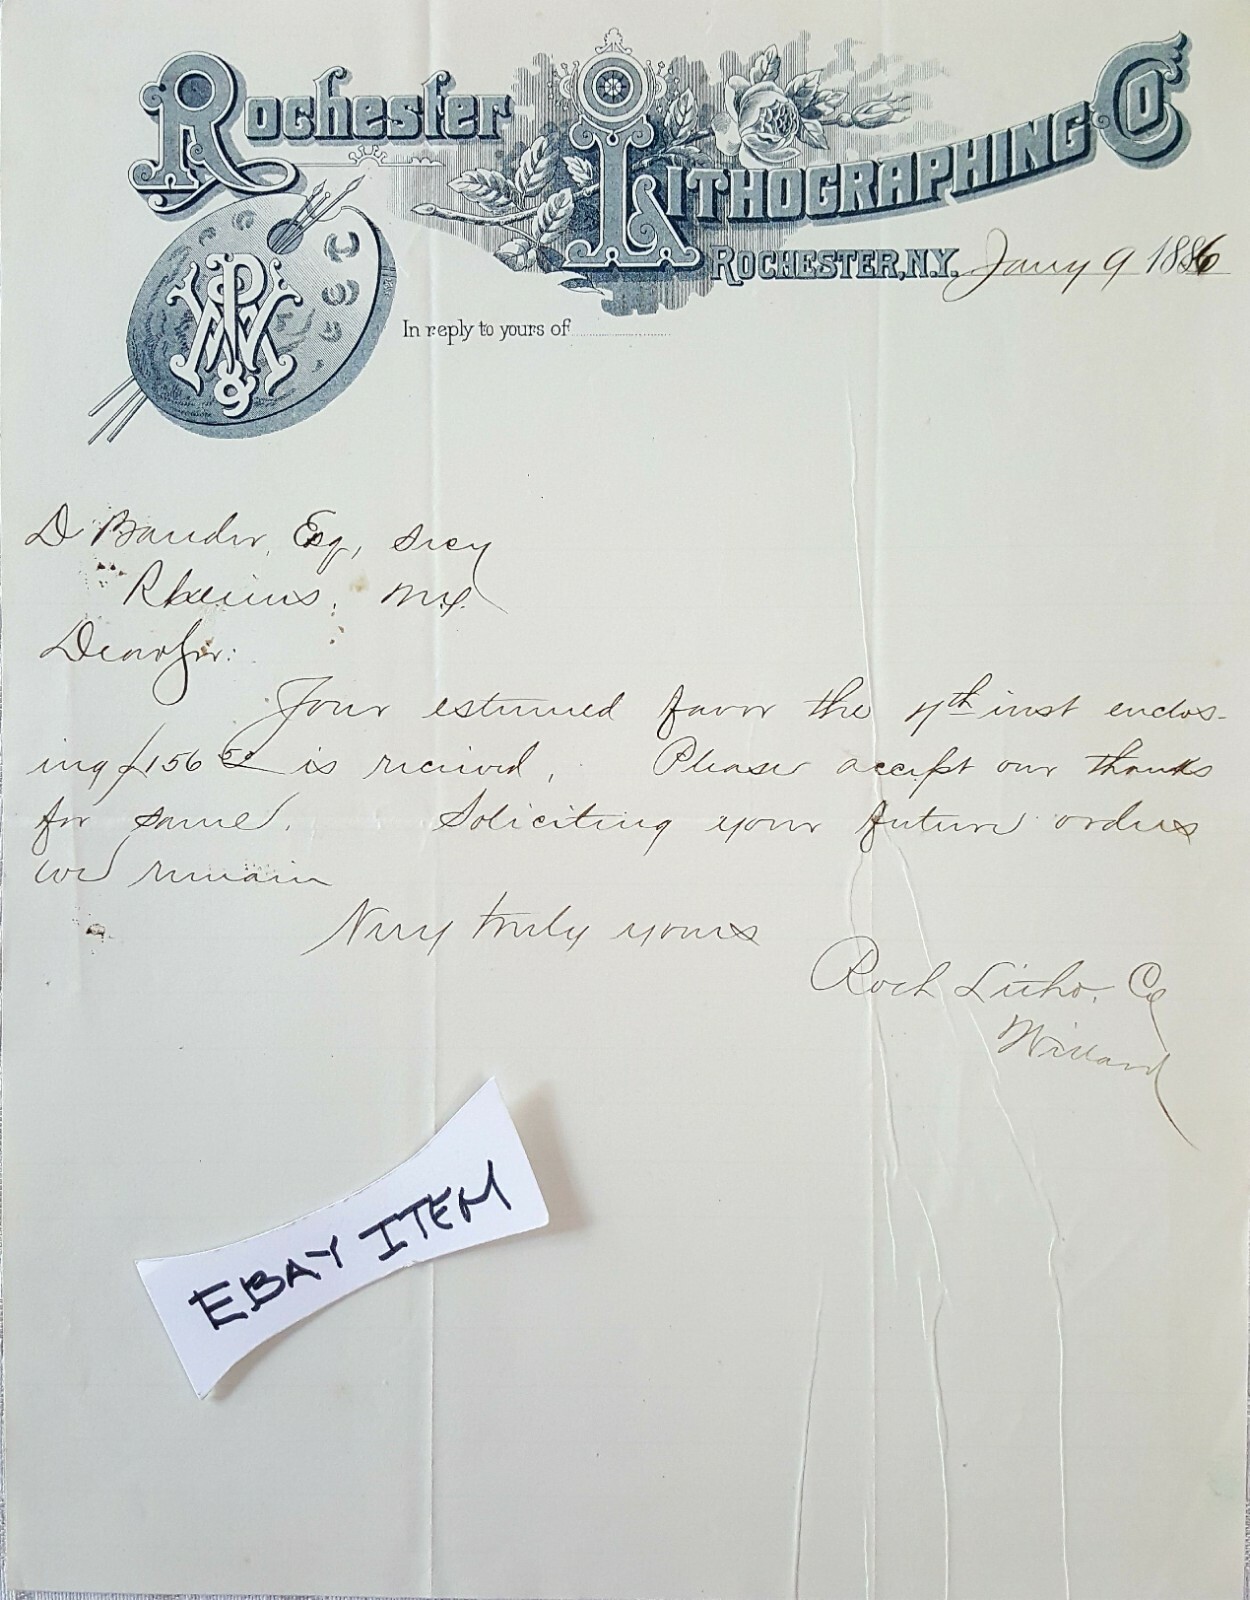 Rochester Lithographing Co
Rochester, N.Y. Jany 9 1886
In reply to yours of
D Bauder, Esq, Secy
Rheims, N.Y.
Dear Sir:
Your esteemed favor the 7th inst enclos-
ing $156 50 is received. Please accept our thanks
for same. Soliciting your future orders
we remain
Very truly yours
Roch Litho. Co
Willard
EBAY ITEM